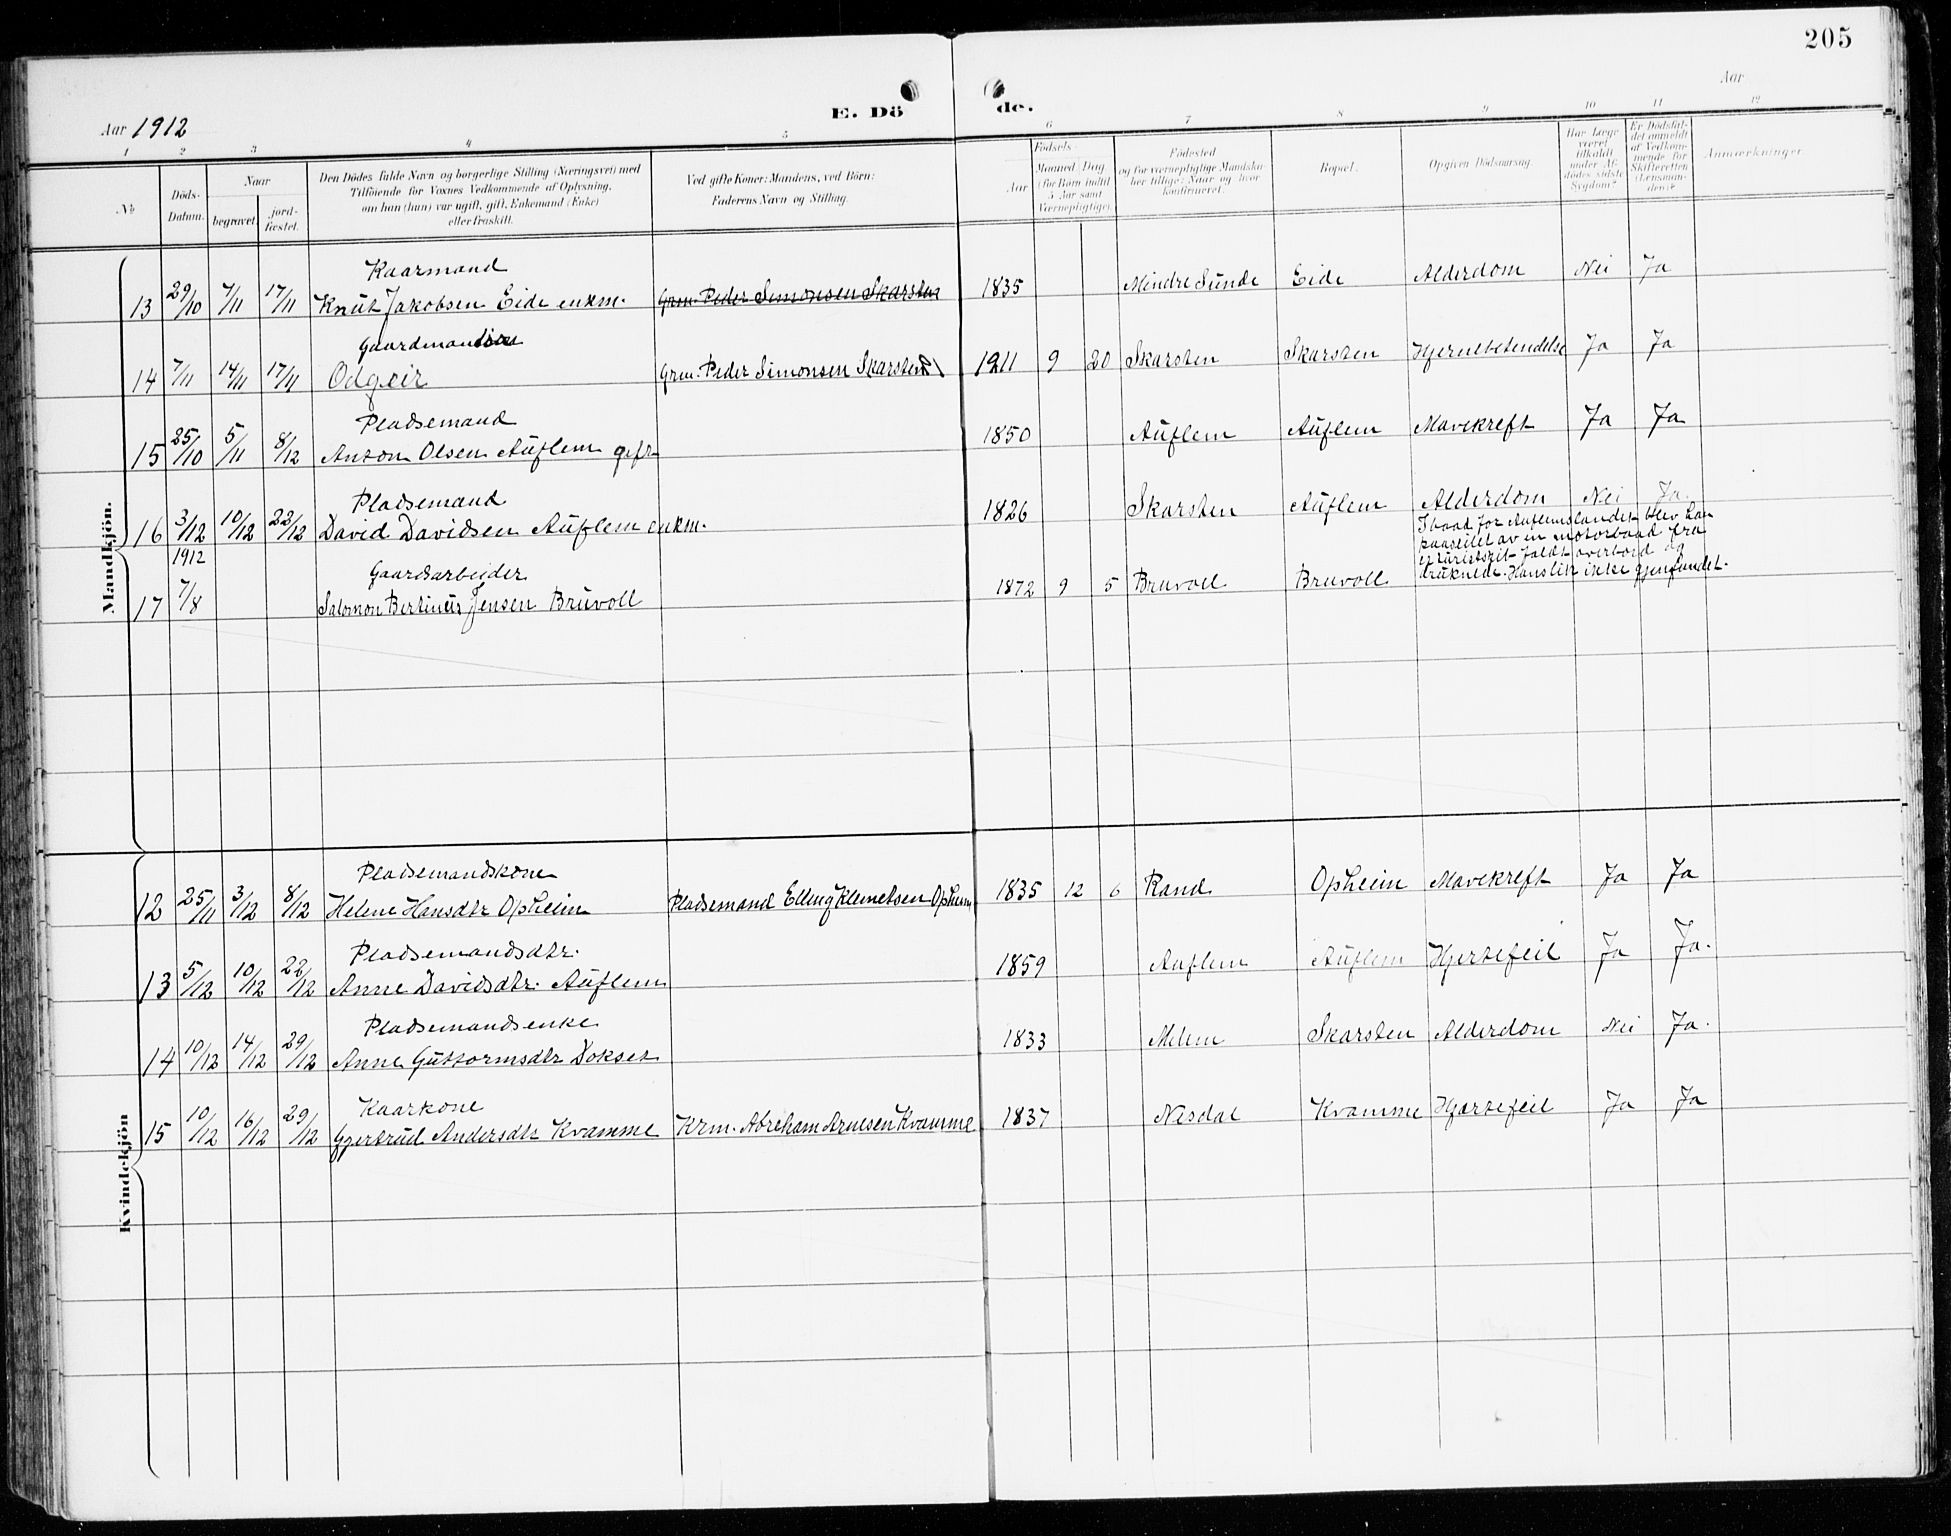 205
Aar 1912
E. Dö de.
Aar
1 2 3 4 5 6 7 8 9 10 11 12
No
Döds-Datum.
Naar
begravet.
jord-fæstet.
Den Dödes fulde Navn og borgerlige Stilling (Næringsvei) med
Tilföiende for Voxnes Vedkommende af Oplysning,
om han (hun) var ugift, gift, Enkemand (Enke)
eller fraskilt.
Ved gifte Koner: Mandens, ved Börn:
Faderens Navn og Stilling.
Födsels-
Aar
Maaned Dag
(for Börn indtil
5 Aar samt
Værnepligtige).
Födested
og for værnepligtige Mandska-
ber tillige: Naar og hvor
konfirmeret.
Bopæl.
Opgiven Dödsaarsag.
Har Læge
været
tilkaldt
under Af-
dödes sidste
Sygdom?
Er Dödsfal-
det anmeldt
af Vedkom-
mende for
Skifteretten
(Lensman-
den)?
Anmærkninger.
Mandkjön.
Kaarmand
13 29/10 7/11 17/11 Knut Jakobsen Eide enkm. Grm. Peder Simonsen Skarsten 1835 Mindre Sunde Eide Alderdom Nei Ja
Gaardmand
14 7/11 14/11 17/11 Odgeir Grm. Peder Simonsen Skarsten 1911 9 20 Skarsten Skarsten Hjernebetendelse Ja Ja
Pladsemand
15 25/10 5/11 8/12 Anton Olsen Auflem gift 1850 Auflem Auflem Mavekreft Ja Ja
Pladsemand
16 3/12 10/12 22/12 David Davidsen Auflem enkm. 1826 Skarsten Auflem Alderdom Nei Ja.
1912
Gaardsarbeider
17 7/8 Salomon Bertinus Jensen Bruvoll 1872 9 5 Bruvoll Bruvoll
I baad for Auflemslandet blev han
paaseilet av en motorbaad fra
et turistskib faldt overbord og
druknede. Hans lik ikke gjenfundet.
Kvindekjön
Pladsemandskone
12 25/11 3/12 8/12 Helene Hansdtr Opheim Pladsemand Elling Klemetsen Opheim 1835 12 6 Rand Opheim Mavekreft Ja Ja
Pladsemandsdtr.
13 5/12 10/12 22/12 Anne Davidsdtr. Auflem 1859 Auflem Auflem Hjertefeil Ja Ja.
Pladsemandsenke
14 10/12 14/12 29/12 Anne Guttormsdtr Dokset 1833 Melem Skarsten Alderdom Nei Ja.
Kaarkone
15 10/12 16/12 29/12 Gjertrud Andersdtr Kvamme Krm. Abreham Arnesen Kvamme 1837 Nesdal Kvamme Hjertefeil Ja Ja